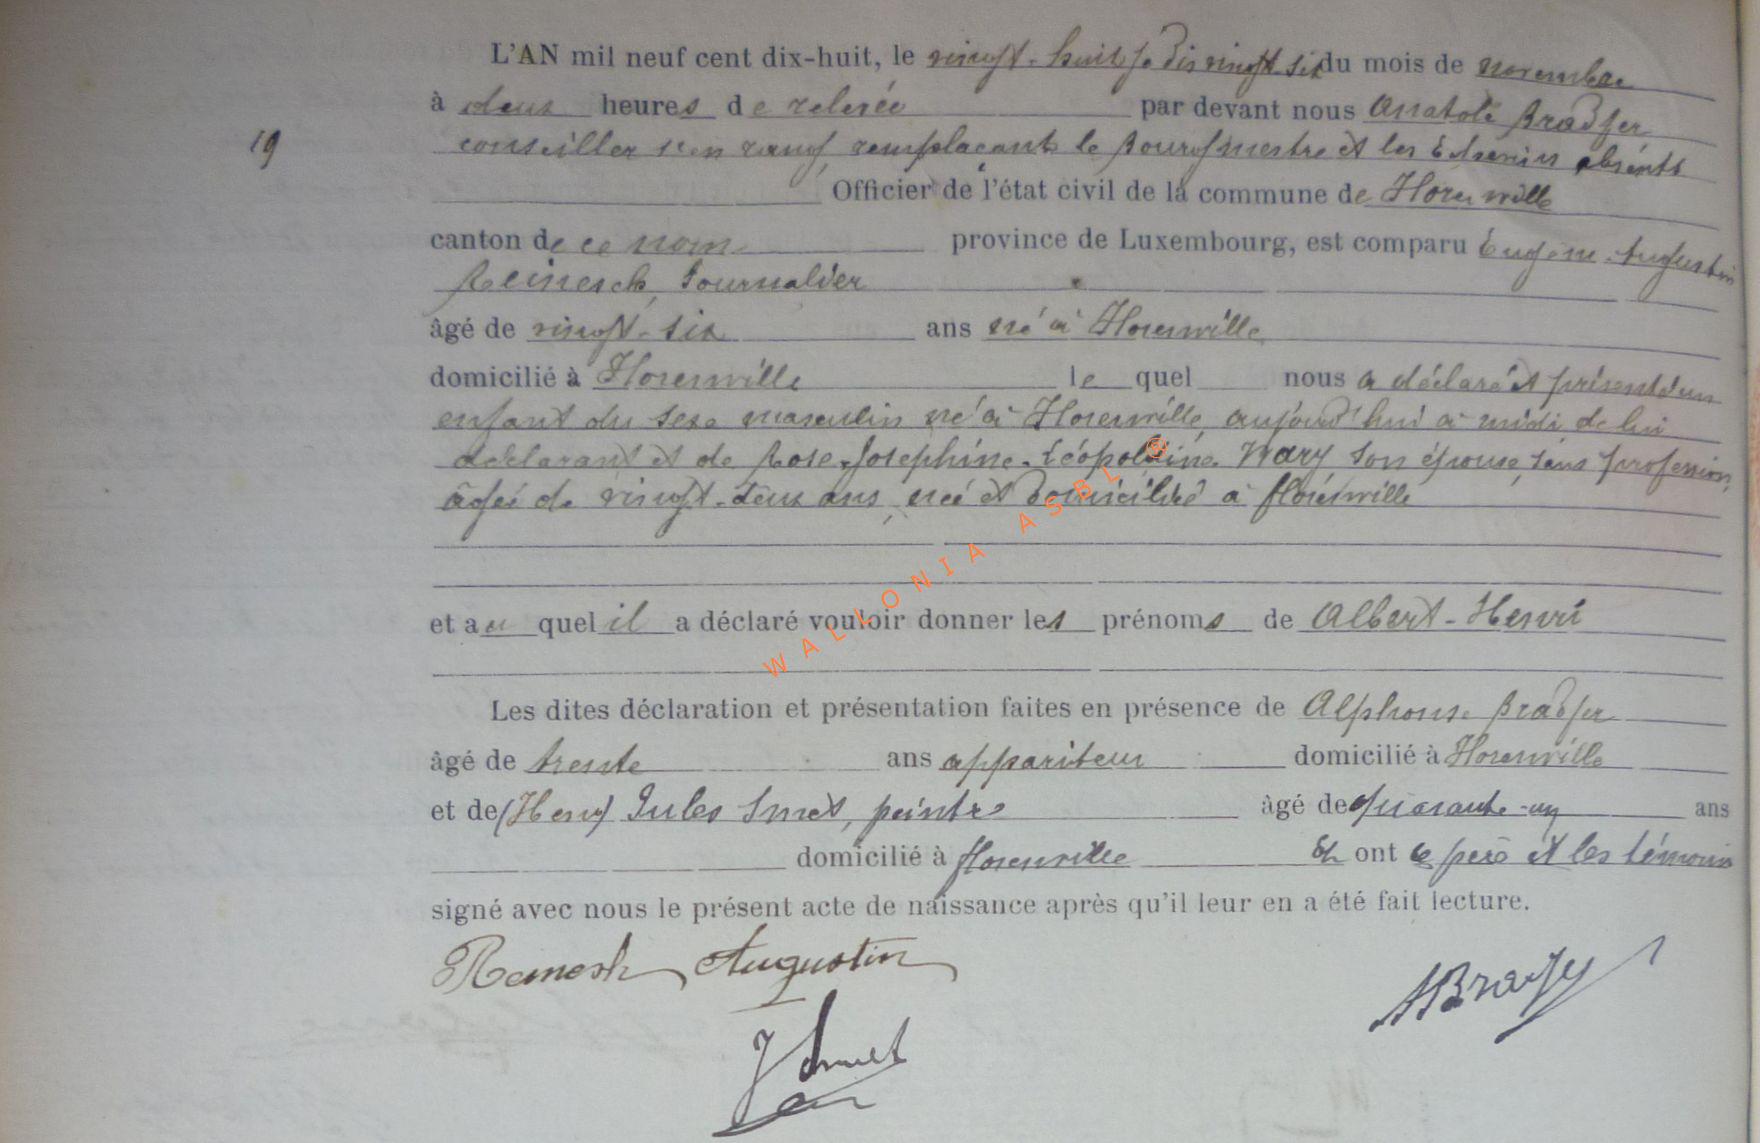 L'AN mil neuf cent dix-huit, le vingt-huit je dis vingt six du mois de novembre
à deux heures de relevée par devant nous Anatole Bradfer
19
conseiller rang remplaçant le Bourgmestre et les Echevins absents
Officier de l'état civil de la commune de Florenville
canton de ce nom province de Luxembourg, est comparu Eugène Augustin
Reinesch, Journalier
âgé de vingt-six ans né à Florenville
domicilié à Florenville le quel nous a déclaré et présenté un
enfant du sexe masculin né à Florenville aujourd'hui à midi de lui
déclarant et de Rose-Josephine-Léopoldine Wary son épouse, sans profession,
âgée de vingt-deux ans, née et domiciliée à florenville
et au quel il a déclaré vouloir donner les prénoms de Albert-Henri
Les dites déclaration et présentation faites en présence de Alphonse Bradfer
âgé de trente ans appariteur domicilié à Florenville
et de (Henry) Jules Smet, peintre âgé de quarante-un ans
domicilié à florenville Et ont le père et les témoins
signé avec nous le présent acte de naissance après qu'il leur en a été fait lecture.
Remesh Augustin
ABradfer
J Smet
WALLONIA ASBL ©